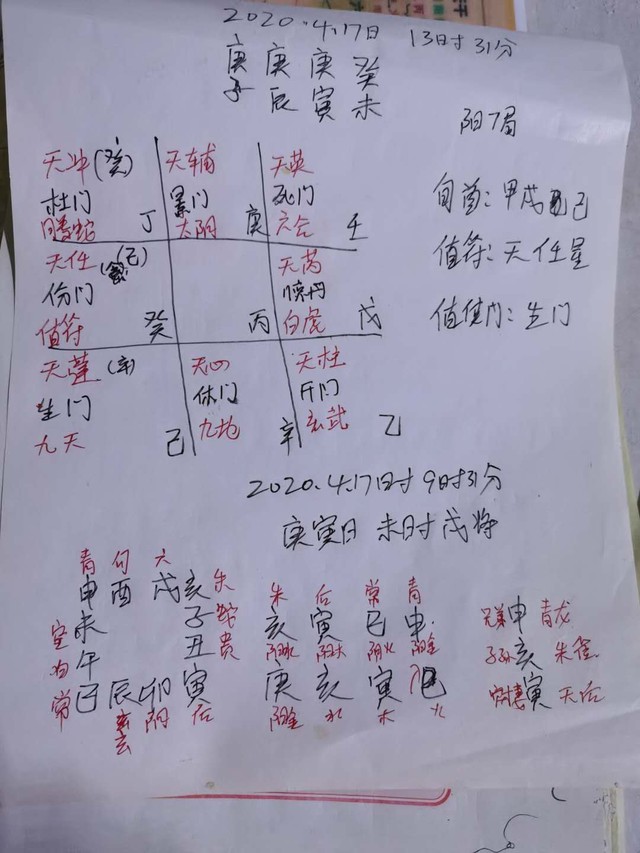 2020.4.17日 13时31分
庚 庚 庚 癸
子 辰 寅 未
阳7局
天冲(癸) 天辅 天英
杜门 景门 死门
腾蛇 丁 太阴 庚 六合 壬
旬首：甲戌己
天任(己) 天芮
伤门 惊门
值符 癸 丙 白虎 戊
值符：天任星
值使门：生门
天蓬(辛) 天心 天柱
生门 休门 开门
九天 己 九地 辛 玄武 乙
2020.4.17日寸 9时31分
庚寅日 未时 戌将
青 勾 六 朱
申 酉 戌 亥
蛇
未 子
空
丑 贵
午
常 巳 辰 卯 寅
玄 阴 后
朱 后 常 青
亥 寅 巳 申
阳水 阳木 阴火 阳金
庚 亥 寅 巳
阳金 水 木 火
兄弟 申 青龙
子孙 亥 朱雀
寅 天后